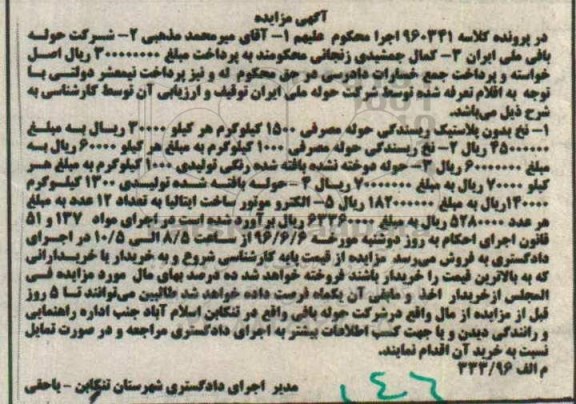 آگهی مزایده
در پرونده کلاسه ۹۶۰۳۴۱ اجرا محکوم علیهم ۱- آقای میرمحمد مذهبی ۲- شرکت حوله
بافی ملی ایران ۳- کمال جمشیدی زنجانی محکومند به پرداخت مبلغ ۳۰۰۰۰۰۰۰۰۰ ریال اصل
خواسته و پرداخت جمع خسارات دادرسی در حق محکوم له و نیز پرداخت نیمعشر دولتی با
توجه به اقلام تعرفه شده توسط شرکت حوله ملی ایران توقیف و ارزیابی آن توسط کارشناسی به
شرح ذیل می‌باشد.
۱- نخ بدون پلاستیک ریسندگی حوله مصرفی ۱۵۰۰ کیلوگرم هر کیلو ۳۰۰۰۰ ریال به مبلغ
۴۵۰۰۰۰۰۰ ریال ۲- نخ ریسندگی حوله مصرفی ۱۰۰۰ کیلوگرم به مبلغ هر کیلو ۶۰۰۰۰ ریال به
مبلغ ۶۰۰۰۰۰۰۰ ریال ۳- حوله دوخته نشده بافته شده رنگی تولیدی ۱۰۰۰ کیلوگرم به مبلغ هر
کیلو ۷۰۰۰۰ ریال به مبلغ ۷۰۰۰۰۰۰۰ ریسال ۴- حوله بافته شده تولیدی ۱۳۰۰ کیلوگرم
۱۴۰۰۰۰ریال به مبلغ ۱۸۲۰۰۰۰۰۰ ریال ۵- الکترو موتور ساخت ایتالیا به تعداد ۱۲ عدد به مبلغ
هر عدد ۵۲۸۰۰۰۰ ریال به مبلغ ۶۳۳۶۰۰۰۰ ریال برآورد شده است در اجرای مواد ۱۳۷ و ۵۱
قانون اجرای احکام به روز دوشنبه مورخه ۹۶/۶/۶ از ساعت ۸/۵ الی ۱۰/۵ در اجرای
دادگستری به فروش می‌رسد مزایده از قیمت پایه کارشناسی شروع و به خریدار یا خریدارانی
که به بالاترین قیمت را خریدار باشند فروخته خواهد شد ده درصد بهای مال مورد مزایده فی
المجلس ازخریدار اخذ و مابقی آن یکماه فرصت داده خواهد شد طالبین می‌توانند تا ۵ روز
قبل از مزایده از مال واقع درشرکت حوله بافی واقع در تنکابن اسلام آباد جنب اداره راهنمایی
و رانندگی دیدن و یا جهت کسب اطلاعات بیشتر به اجرای دادگستری مراجعه و در صورت تمایل
نسبت به خرید آن اقدام نمایند.
م الف ۳۳۳/۹۶
مدیر اجرای دادگستری شهرستان تنکابن - یاحقی